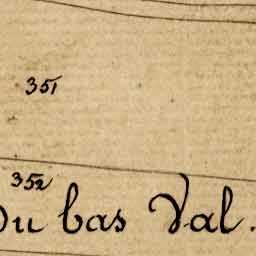 351
352
Du bas Val.